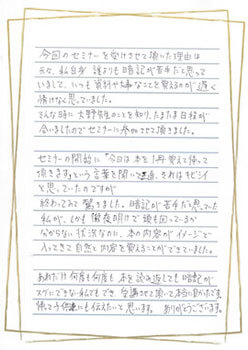 今回のセミナーを受けさせて頂いた理由は
元々、私自身 誰よりも暗記が苦手だと思って
いまして、いつも資料や大事なことを覚えるのが遅く
情けなく思っていました。
そんな時に大野先生のことを知り、たまたま日程が
合いましたのでセミナーに参加させて頂きました。
セミナーの開始に「今日は本を1冊覚えて帰って
頂きます」という言葉を聞いて、それはキビシイ
と思っていたのですが
終わってみて驚きました。暗記が苦手だと思っていた
私が、しかも徹夜明けで頭も回っているか
わからない状況なのに、本の内容がイメージで
入ってきて自然と内容を覚えることができていました。
あれだけ何度も何度も本を読み返しても暗記が
スグにできない私でもでき、受講させて頂いて本当に良かったです。
帰って子供達にも伝えたいと思います。ありがとうございます。